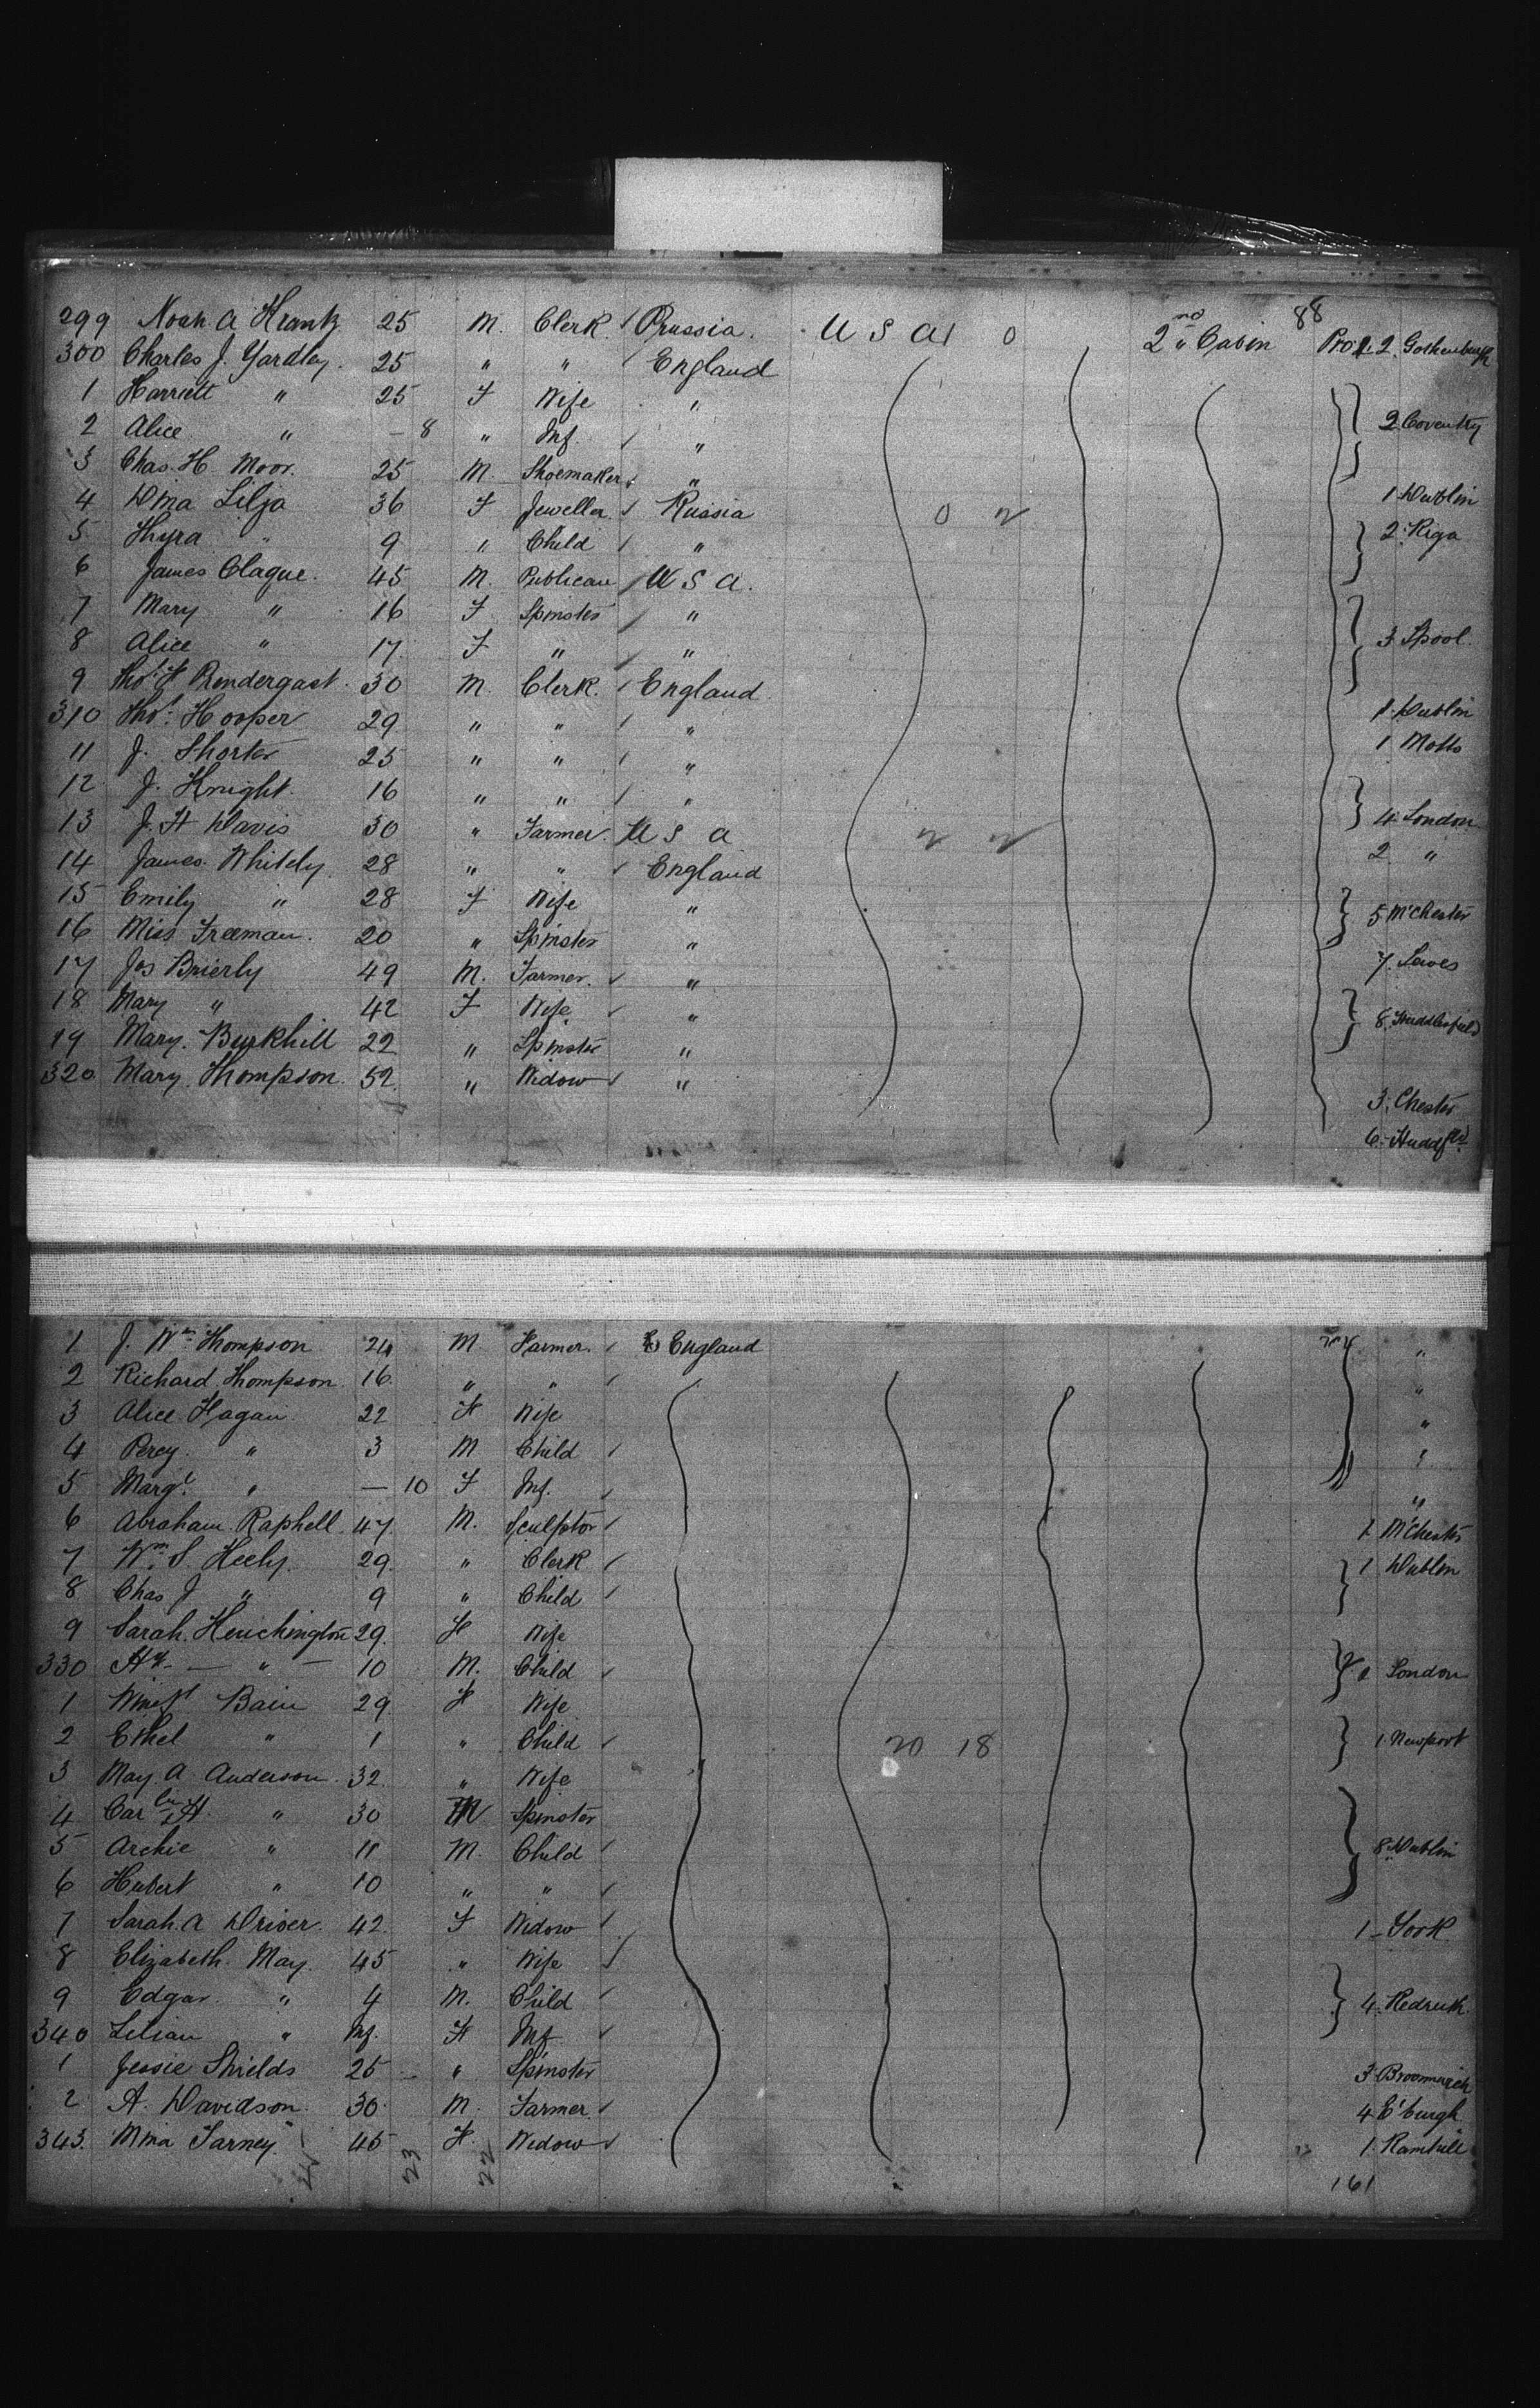 88
299 Noah A Krantz 25 M. Clerk Prussia. U S A 0 2nd Cabin Pro 2. Gothenburgh
300 Charles J. Yardley. 25 " " England
1 Harriett " 25 F Wife "
2 Alice " - 8 " Inf. " 2 Coventry
3 Chas. H Moor. 25 M. Shoemaker "
4 Dina Lilja 36 F Jeweller Russia 0 2 1 Dublin
5 Thyra " 9 " Child " 2. Riga
6 James Clague. 45 M. Publican U S A.
7 Mary " 16 F Spinster "
8 Alice " 17 F " " 3 Lpool.
9 Thos. F Prendergast. 30 M. Clerk. England
310 Thos. Hooper 29 " " " 1 Dublin
11 J. Shorter 25 " " " 1 Motts
12 J. Knight. 16 " " "
13 J. H Davis 30 " Farmer. U S A 2 2 4. London
14 James Whitely. 28 " " England 2 "
15 Emily " 28 F Wife "
16 Miss Freeman. 20 " Spinster " 5 M'Chester
17 Jos Brierly 49 M. Farmer. " 7.
18 Mary " 42 F Wife "
19 Mary. Burkhill 22 " Spinster " 8. Huddersfield
320 Mary. Thompson. 52. " Widow "
3. Chester
6. Huddfld.
1 J. Wm Thompson 24 M. Farmer. England "
2 Richard Thompson. 16. " " "
3 Alice Hagan. 22 F Wife "
4 Percy " 3 M. Child "
5 Margt. " — 10 F Inf. "
6 Abraham Raphell. 47. M. Sculptor 1 M'Chester
7 Wm. S. Heely. 29. " Clerk 1 Dublin
8 Chas J " 9 " Child
9 Sarah. Henchington 29. F Wife
330 Hy — " — 10 M. Child London
1 Bain 29. F Wife
2 Ethel " 1 " Child 20 18 1. Newport
3 May A Anderson. 32. " Wife
4 H. " 30 Spinster
5 Archie " 11 M. Child 8. Dublin
6 Hubert " 10 " "
7 Sarah. A Driver. 42. F Widow 1 - York
8 Elizabeth. May. 45 " Wife
9 Edgar. " 4 M. Child 4. Redruth.
340 Lilian " Inf. F Inf
1 Jessie Shields 25 " Spinster 3
2 A. Davidson. 30. M. Farmer. 4 E'burgh
343. Mina Tarney. 45 F. Widow 1. Ramhill
23 22
161